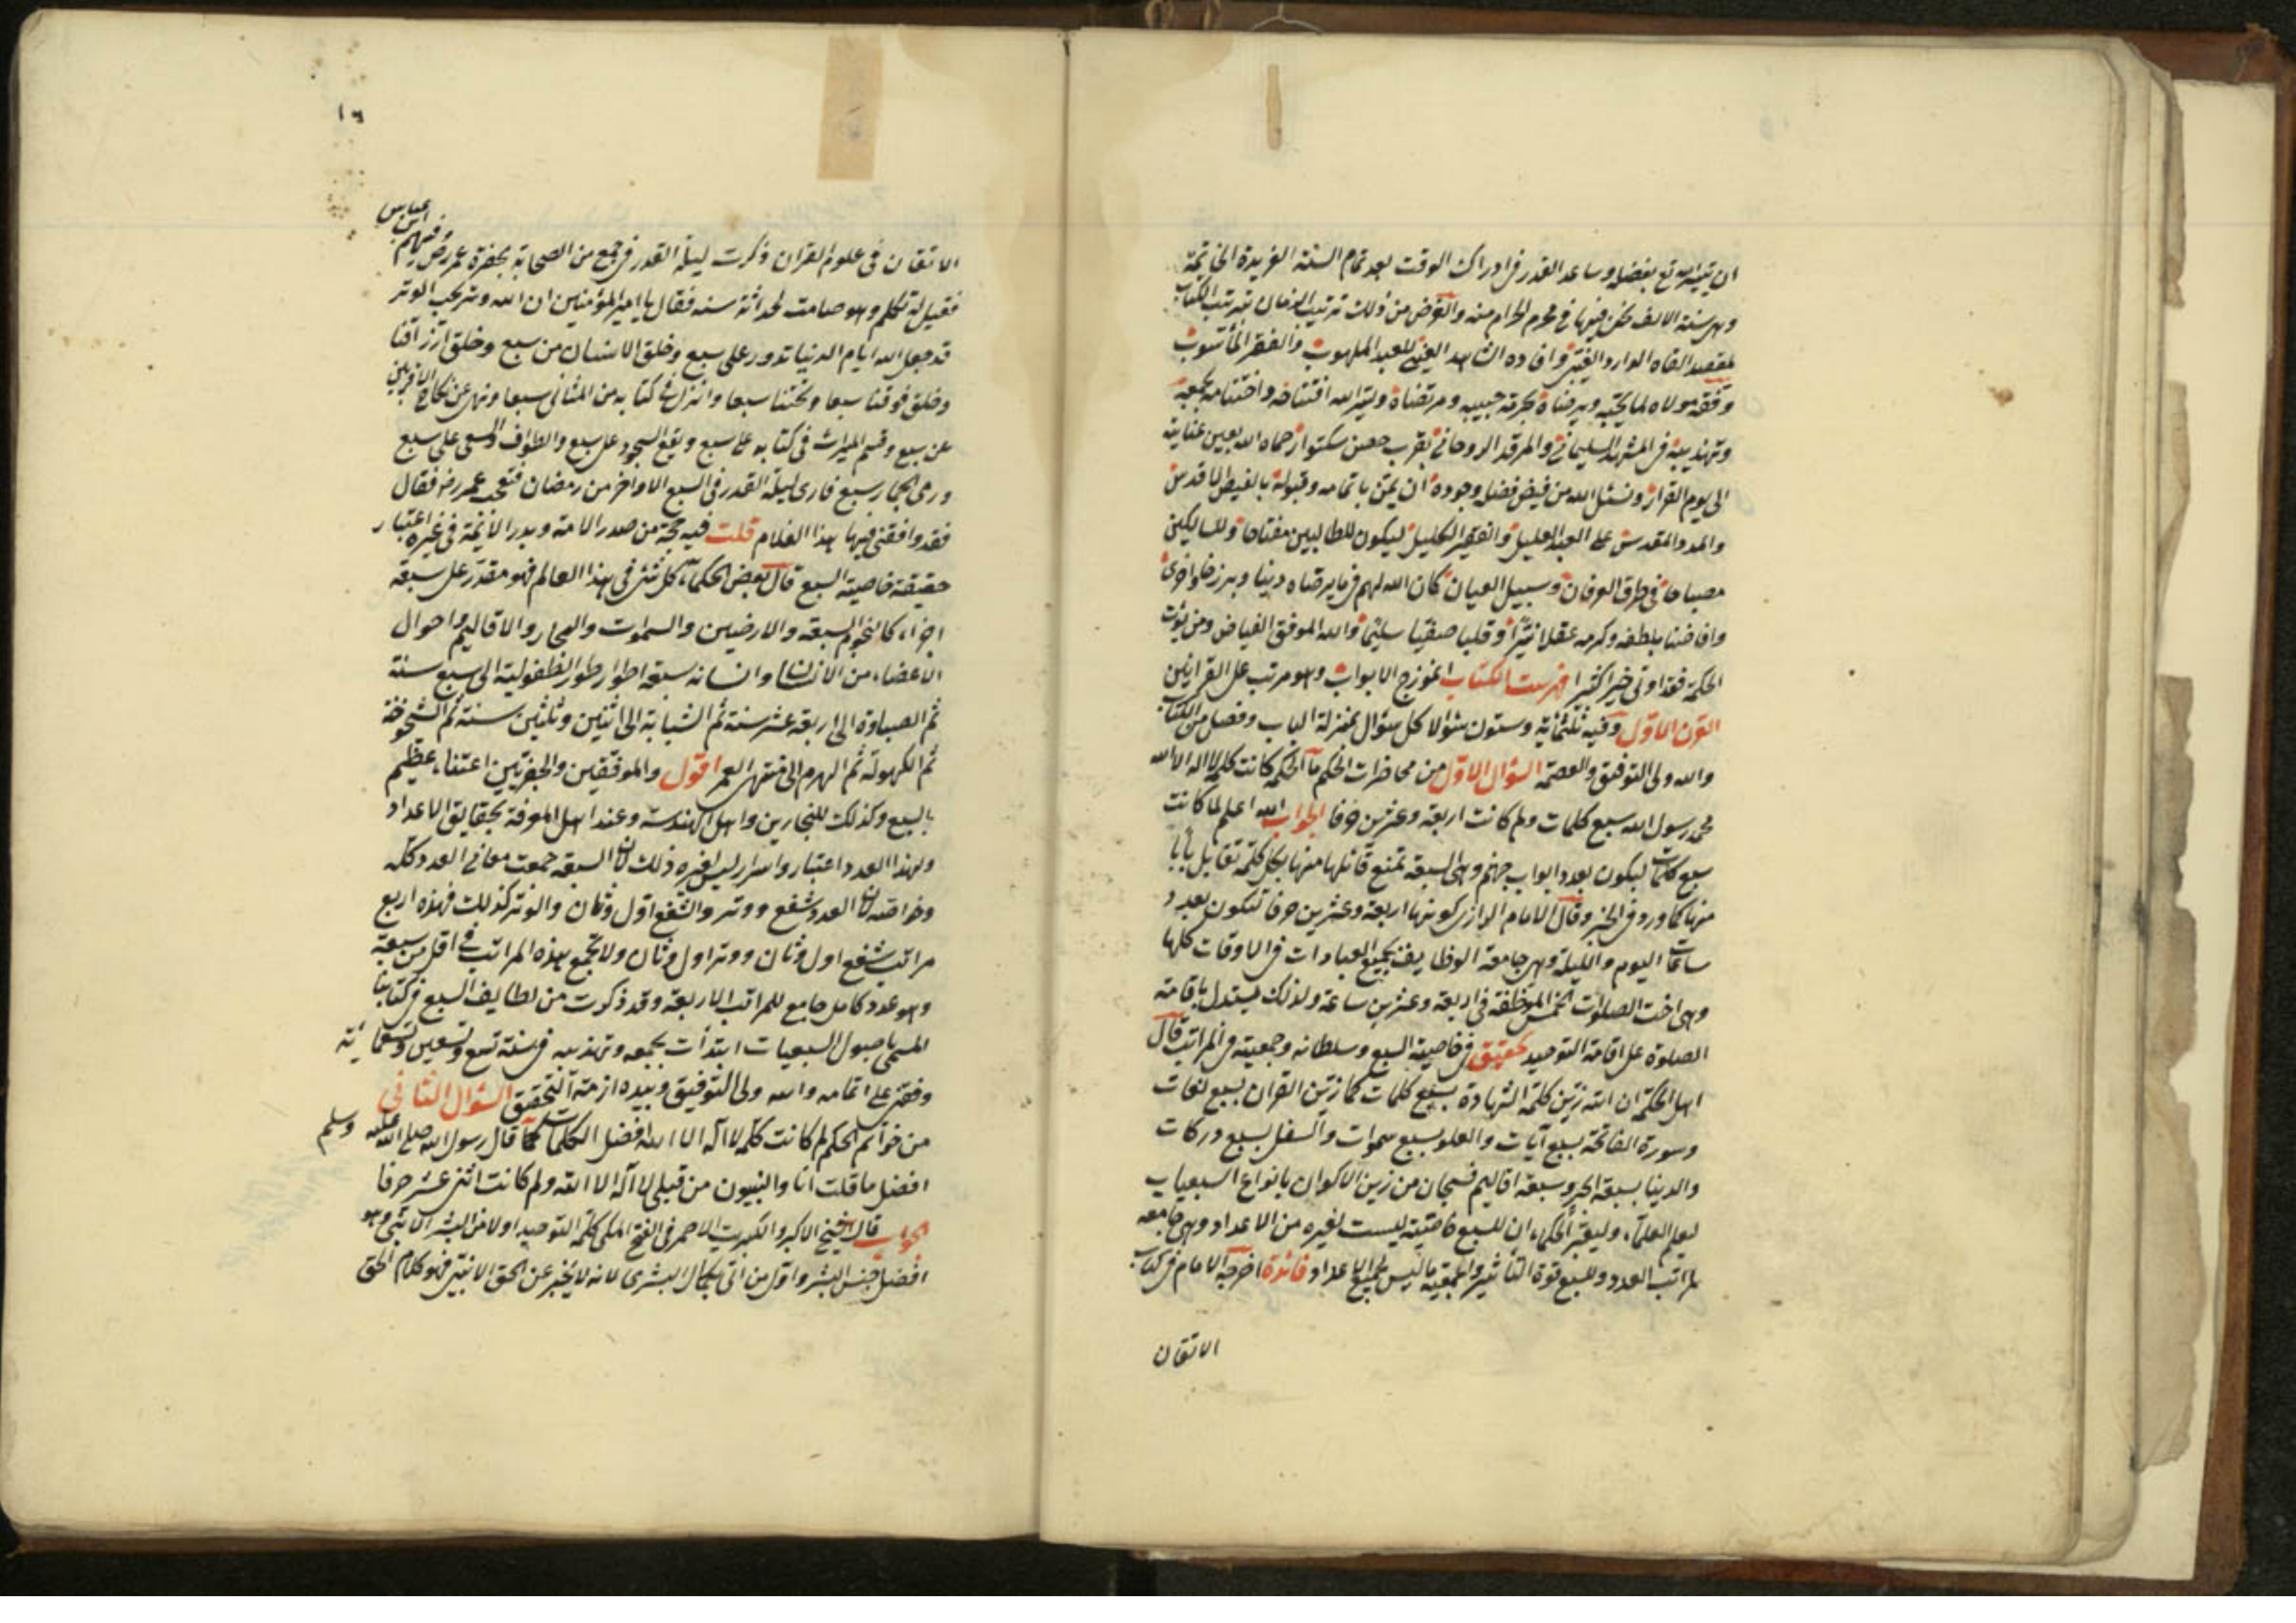 ان يسر الله تع بفضله وساعد القدر فى ادراك الوقت بعد تمام السنة الفريدة الخاتمة
وهى سنة الالف نحن فيها فى محرم الحرام منه والغرض من ذلك ترتيب الزمان بترتيب الكتاب
لمقصد القاه الوارد الغيبى وافاده الشاهد العينى للعبد الملهوب والفقير المأسوب
وفقه مولاه لما يحبه ويرضاه بحرمة حبيبه ومرتضاه ويسر الله افتتاحه واختتامه بجمعه
وتهذيبه فى المشهد السليمانى والمرقد الروحانى بقرب حصن سكتوار حماه الله بعين عنايته
الى يوم القرار ونسئل الله من فيض فضله وجوده ان يمن باتمامه وقبوله بالفيض الاقدس
والمدد المقدس على العبد العليل والفقير الكليل ليكون للطالبين مفتاحا وللسالكين
مصباحا فى طرق العرفان وسبيل العيان كان الله لهم فى ما يرضاه دينا وبرزخا واخرى
وافاضنا بلطفه وكرمه عقلا نيرا وقلبا صفيا سليما والله الموفق الفياض ومن يؤت
الحكمة فقد اوتى خيرا كثيرا فهرست الكتاب انموذج الابواب وهو مرتب على القرانين
القرن الاول وفيه ثلثمائة وستون سئوالا كل سئوال بمنزلة الباب وفصل من الكتاب
والله ولى التوفيق والعصمة السئوال الاول من محاضرات الحكم ما الحكمة كانت كلمة لا اله الا الله
محمد رسول الله سبع كلمات ولم كانت اربعة وعشرين حرفا الجواب الله اعلم لما كانت
سبع كلمات ليكون بعدد ابواب جهنم وهى السبعة تمنع قائلها منها بكل كلمة تقابل بابا
منها كما ورد فى الخبر وقال الامام الرازى كونها اربعة وعشرين حرفا لتكون بعدد
ساعات اليوم والليلة وهى جامعة الوظايف بجميع العبادات فى الاوقات كلها
وهى اخت الصلوات الخمس الموظفة فى اربعة وعشرين ساعة ولذلك يستدل باقامة
الصلوة على اقامة التوحيد تحقيق فى خاصية السبع وسلطانه وجمعيته فى المراتب قال
اهل الحكمة ان الله زين كلمة الشهادة بسبع كلمات كما زين القران بسبع لغات
وسورة الفاتحة بسبع آيات والعلو بسبع سموات والسفل بسبع دركات
والدينا بسبعة ابحر وسبعة اقاليم فسبحان من زين الاكوان بانواع السبعيات
ليعلم العلماء وليعتبر الحكماء ان للسبع خاصية ليست لغيره من الاعداد وهى جامعة
لمراتب العدد وللسبع قوة التأثير والجمعية ما ليس لجميع الاعداد فائدة اخرجه الامام فى كتاب
الاتقان
١٦
الاتقان فى علوم القران ذكرت ليلة القدر فى جمع من الصحابة بحضرة عمر رض وفيهم ابن عباس
فقيل له تكلم وهو صامت لحداثة سنه فقال يا امير المؤمنين ان الله وتر يحب الوتر
قد جعل الله ايام الدنيا تدور على سبع وخلق الانسان من سبع وخلق ارزاقنا
وخلق فوقنا سبعا وتحتنا سبعا وانزل فى كتابه من المثانى سبعا ونهى عن نكاح الاقربين
عن سبع وقسم الميراث فى كتابه على سبع ويقع السجود على سبع والطواف والسعى على سبع
ورمى الجمار بسبع فارى ليلة القدر فى السبع الاواخر من رمضان فتعجب عمر رض فقال
فقد وافقنى فيها هذا الغلام قلت فيه حجة من صدر الامة وبدر الائمة فى غيره اعتبار
حقيقة خاصية السبع قال بعض الحكماء كل شئ فى هذا العالم فهو مقدر على سبعة
اجزاء كالنجوم السبعة والارضين والسموات والبحار والاقاليم واحوال
الاعضاء من الانسان واسنانه سبعة اطوار طور الطفولية الى سبع سنة
ثم الصباوة الى اربعة عشر سنة ثم الشبابة الى اثنين وثلثين سنة ثم الشيخوخة
ثم الكهولة ثم الهرم الى منتهى العمر اقول والموفقين والجفريين اعتناء عظيم
بالسبع وكذلك للنجارين واهل الهندسة وعند اهل المعرفة بحقايق الاعداد
ولهذا العدد اعتبار واسرار ليس لغيره ذلك لان السبعة جمعت معانى العدد كله
وخواصه لان العدد شفع ووتر والشفع اول وثان والوتر كذلك فهذه اربع
مراتب شفع اول وثان ووتر اول وثان ولا تجمع هذه المراتب فى اقل من سبعة
وهو عدد كامل جامع للمراتب الاربعة وقد ذكرت من لطايف السبع فى كتابنا
المسمى باصول السبعيات ابتدأت بجمعه وتهذيبه فى سنة تسع وتسعين وتسعمائة
وفقنى على اتمامه والله ولى التوفيق وبيده ازمة التحقيق السئوال الثانى
من خواتم الحكم لم كانت كلمة لا اله الا الله افضل الكلمات كما قال رسول الله صلى الله عليه وسلم
افضل ما قلت انا والنبيون من قبلى لا اله الا الله ولم كانت اثنى عشر حرفا
الجواب قال الشيخ الاكبر والكبريت الاحمر فى الفتح المكى كلمة التوحيد اولا من البشر الانبى وهو
افضل جنس البشر واول من اتى بكمال البشرى لانه لا يخبر عن الحق الا نبى فهو كلام الحق